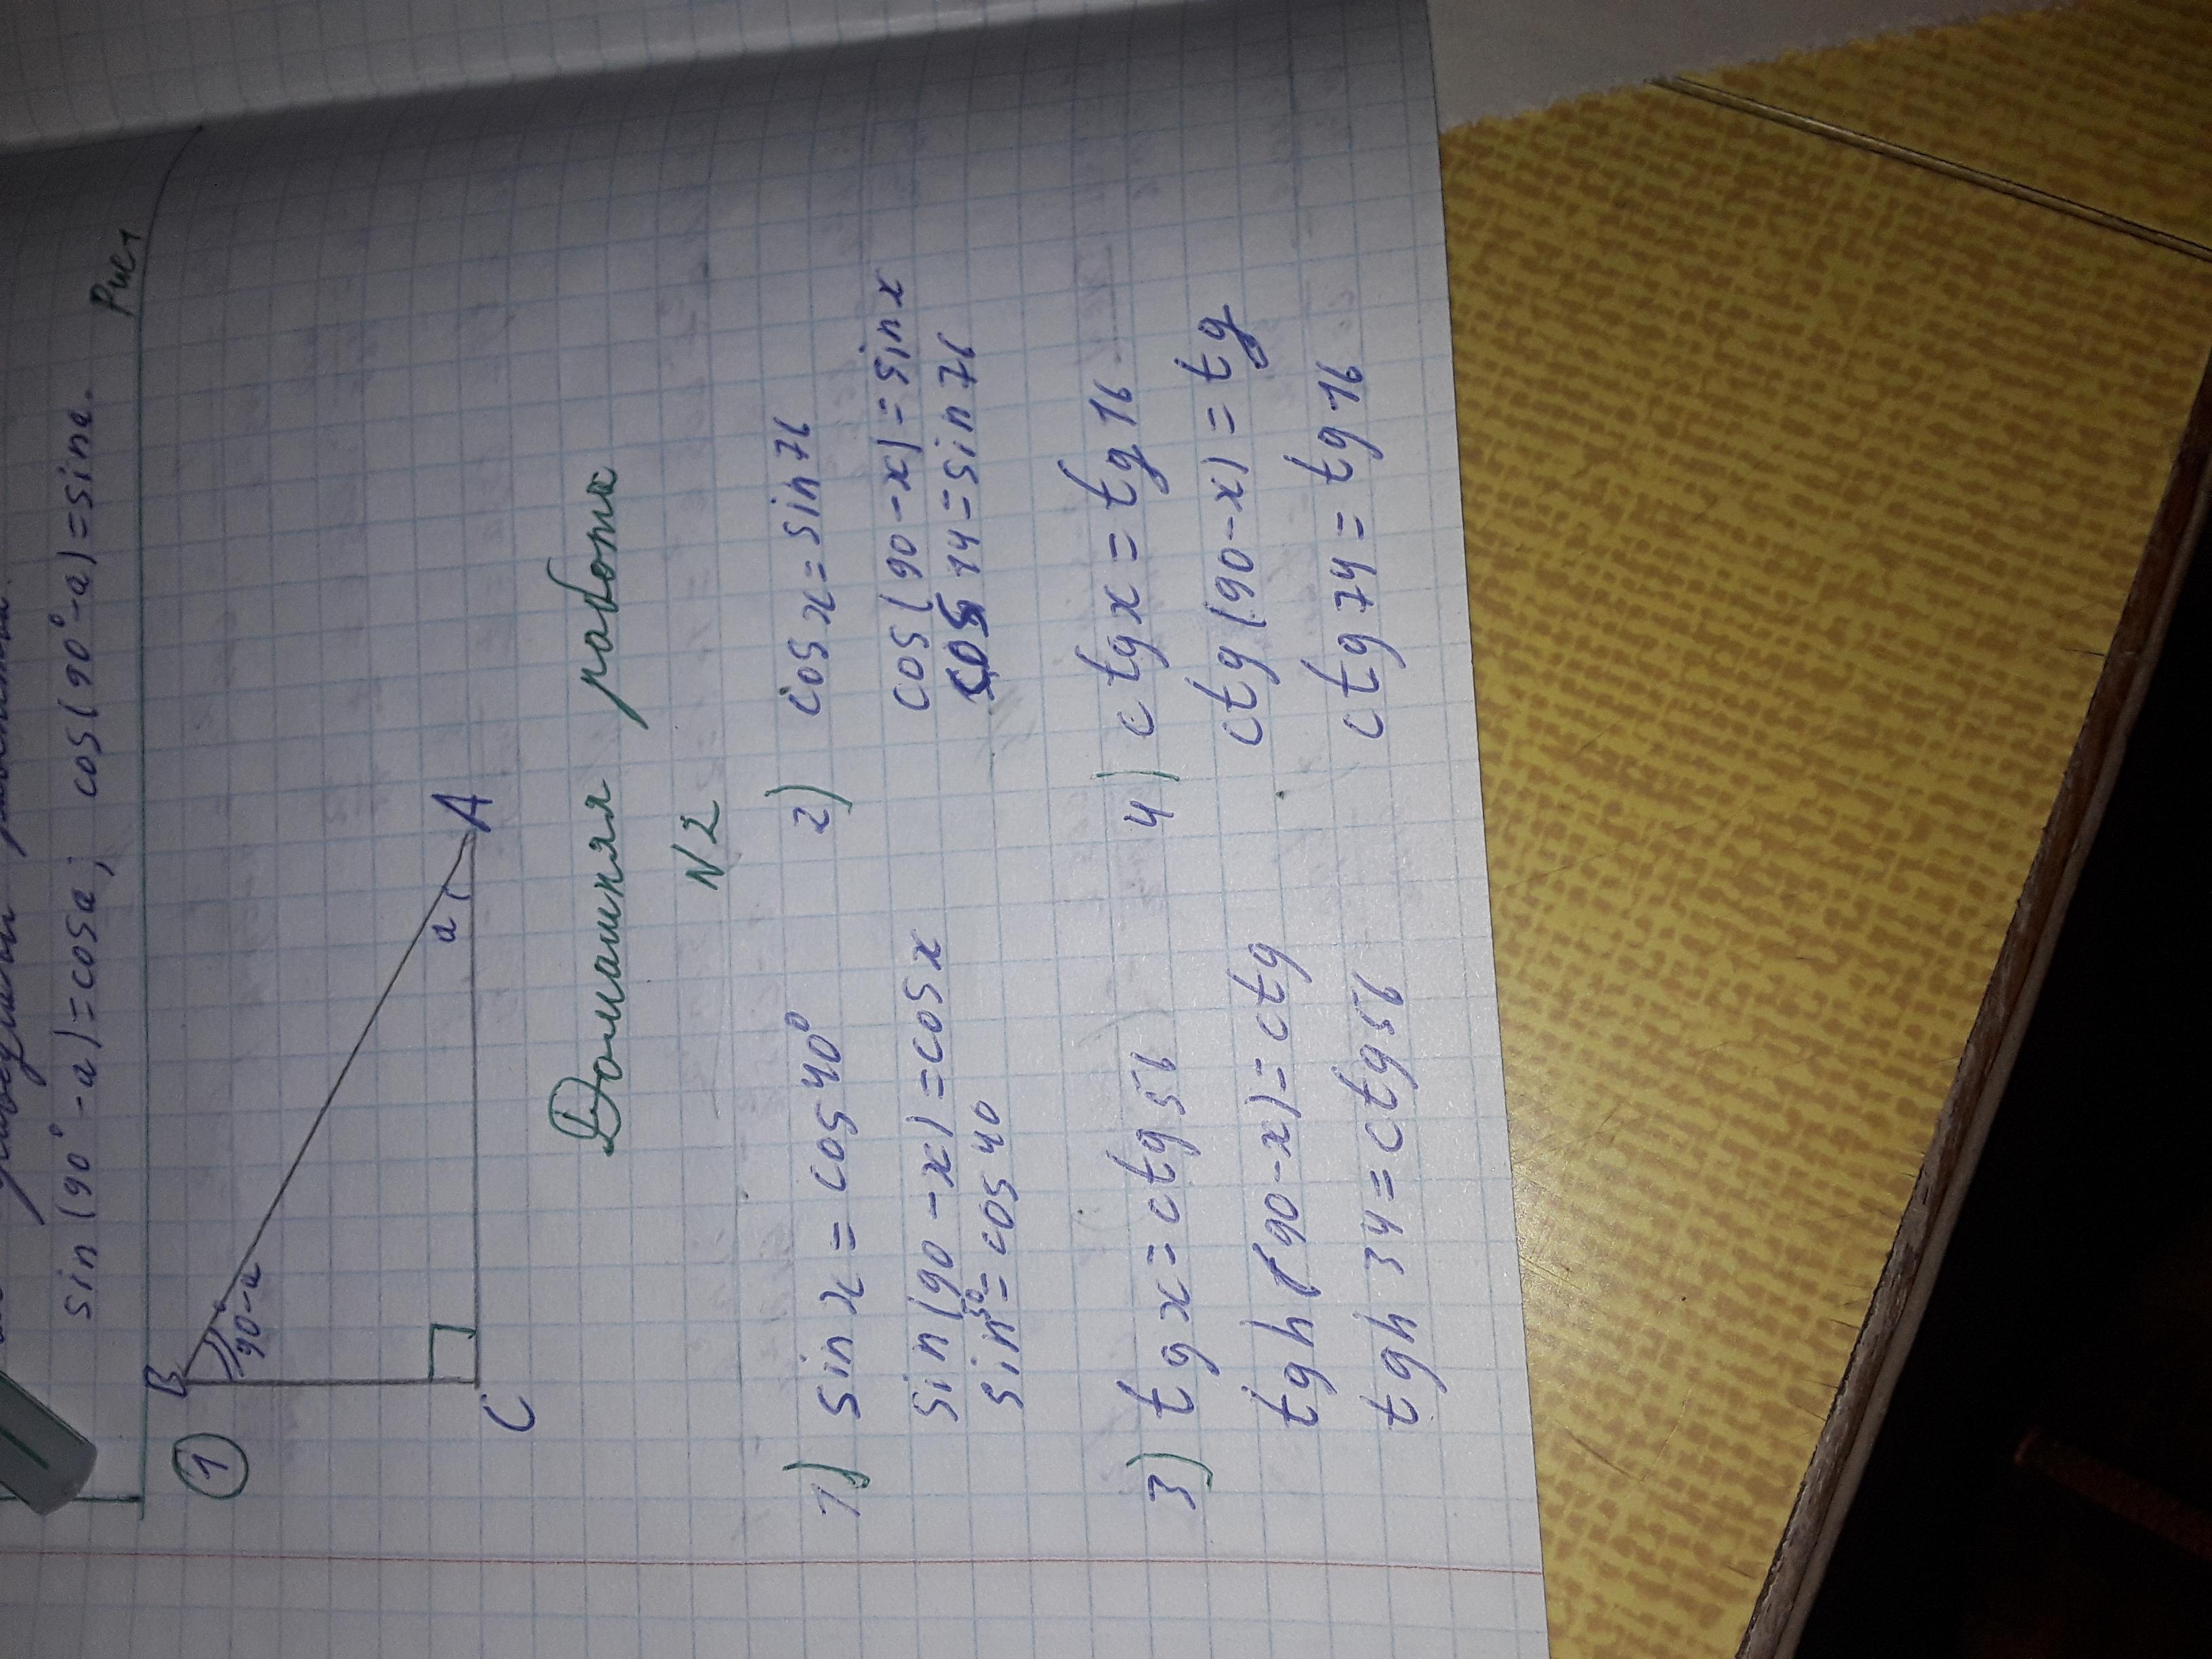 sin(90°-a)=cosa; cos(90°-a)=sina.
Рис1
1
B
90-a
a
A
C
Домашняя работа
N2
1) sin x = cos 40°
sin(90-x)=cos x
sin 50 = cos 40
2) cos x = sin 76
cos(90-x)=sin x
cos 14 = sin 76
3) tg x = ctg 56
tgh(90-x)=ctg
tgh 34 = ctg 56
4) ctg x = tg 16
ctg(90-x)=tg
ctg 74 = tg 16